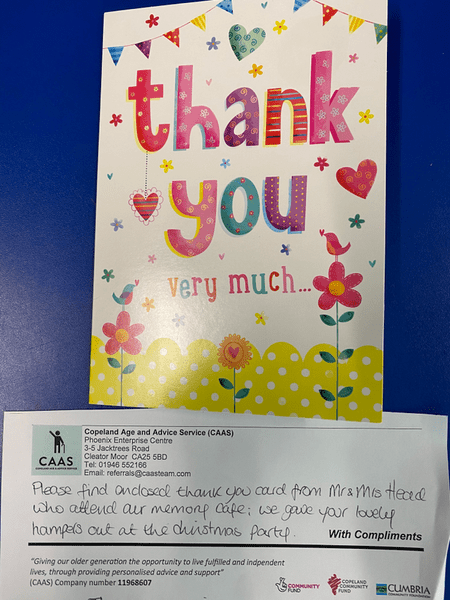 thank
you
very much...
Copeland Age and Advice Service (CAAS)
Phoenix Enterprise Centre
3-5 Jacktrees Road
Cleator Moor CA25 5BD
Tel: 01946 552166
Email: referrals@caasteam.com
CAAS
COPELAND AGE & ADVICE SERVICE
Please find enclosed thank you card from Mr & Mrs Heard
who attend our memory cafe; we gave your lovely
hampers out at the christmas party.
With Compliments
"Giving our older generation the opportunity to live fulfilled and indpendent
lives, through providing personalised advice and support"
(CAAS) Company number 11968607
COMMUNITY
FUND
COPELAND
COMMUNITY
FUND
CUMBRIA
COMMUNITY FOUNDATION